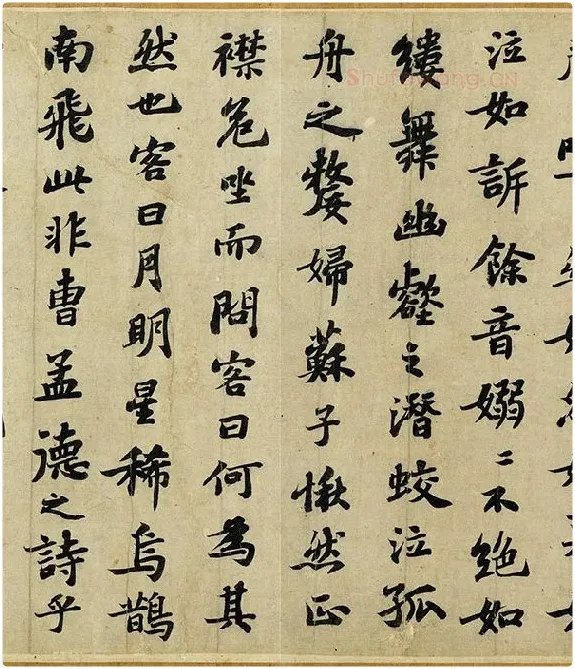 泣如訴餘音嫋〻不絶如
縷舞幽壑之潛蛟泣孤
舟之嫠婦蘇子愀然正
襟危坐而問客曰何為其
然也客曰月明星稀烏鵲
南飛此非曹孟德之詩乎
Shufawang.CN